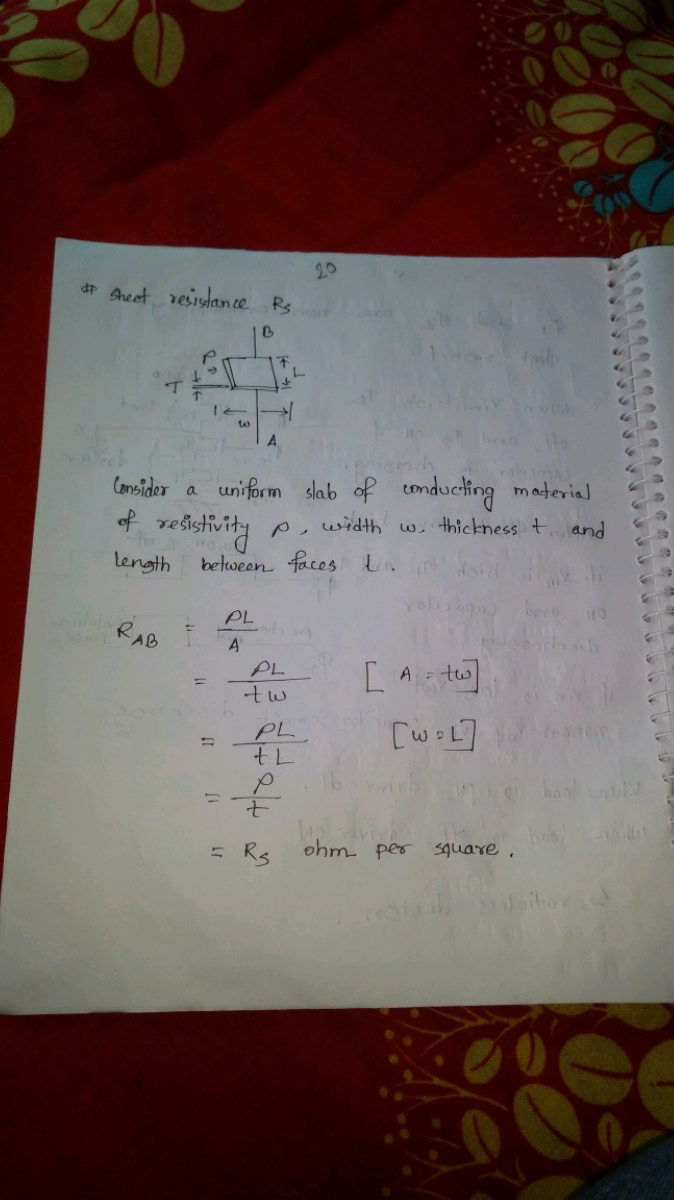 20
# Sheet resistance Rs
B
ρ
T
L
w
A
Consider a uniform slab of conducting material
of resistivity ρ, width w, thickness t and
length between faces L.
R_AB = ρL/A
= ρL/tw [A = tw]
= ρL/tL [w = L]
= ρ/t
= Rs ohm per square.